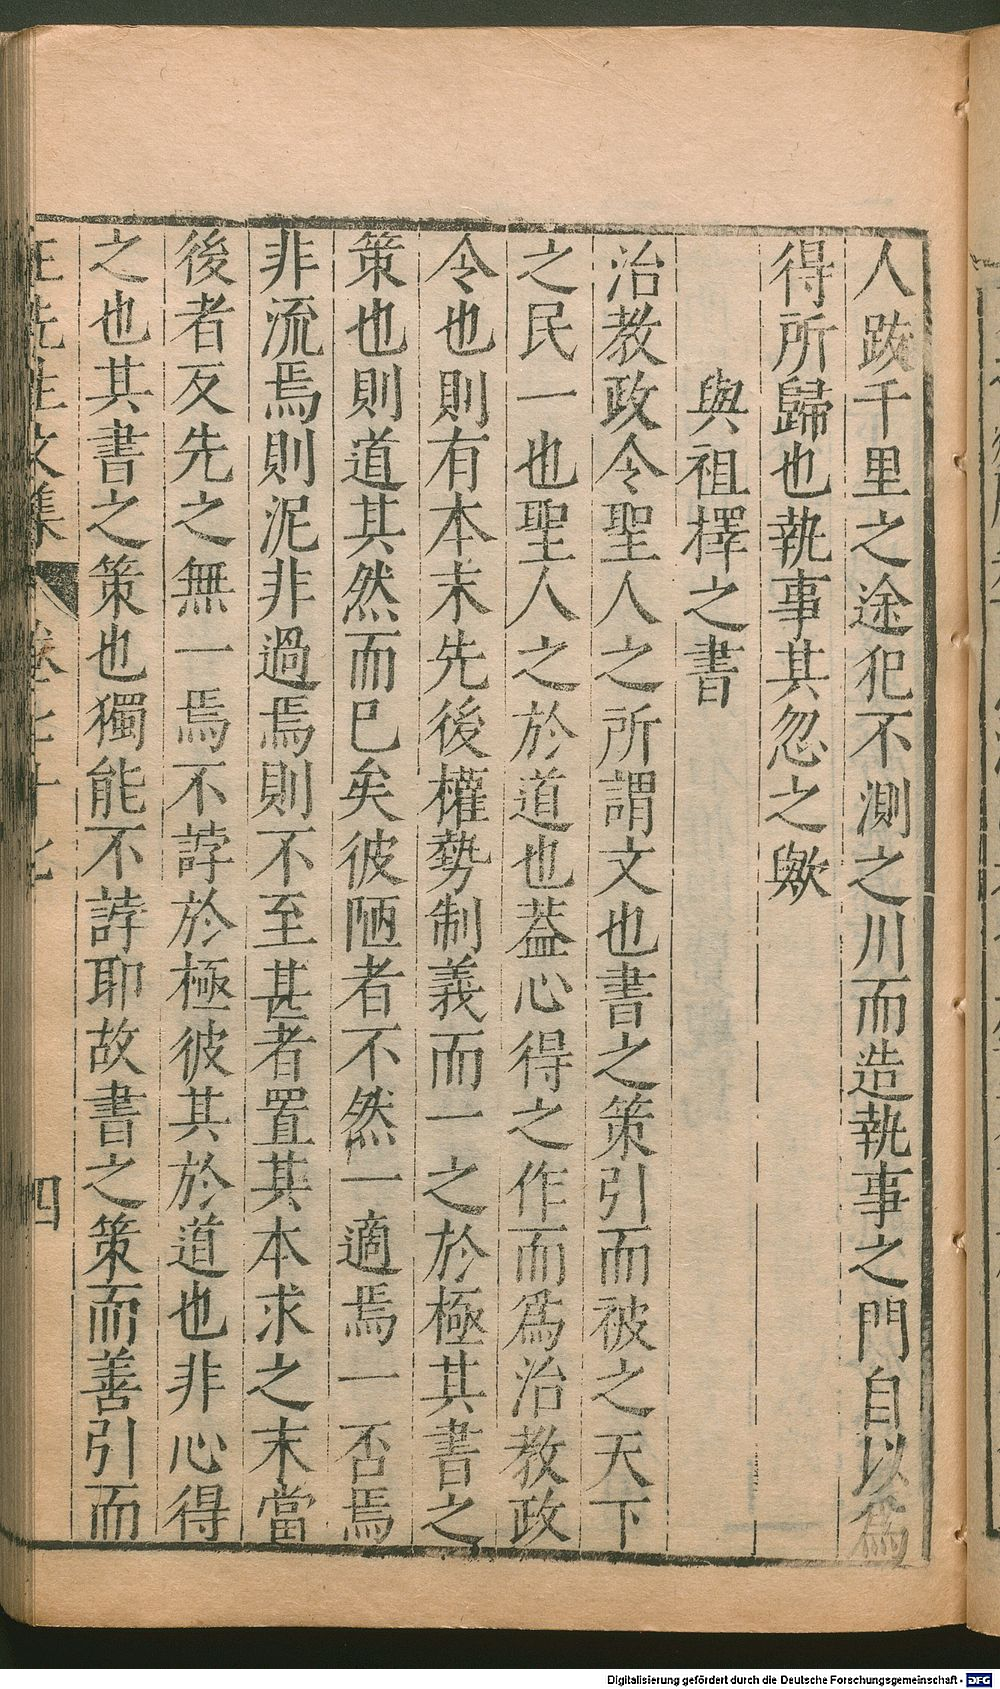 人跋千里之途犯不測之川而造執事之門自以爲
得所歸也執事其忽之歟
與祖擇之書
治教政令聖人之所謂文也書之策引而被之天下
之民一也聖人之於道也蓋心得之作而爲治教政
令也則有本末先後權勢制義而一之於極其書之
策也則道其然而已矣彼陋者不然一適焉一否焉
非流焉則泥非過焉則不至甚者置其本求之末當
後者反先之無一焉不誖於極彼其於道也非心得
之也其書之策也獨能不誖耶故書之策而善引而
先生文集 卷七十七 四
Digitalisierung gefördert durch die Deutsche Forschungsgemeinschaft - DFG